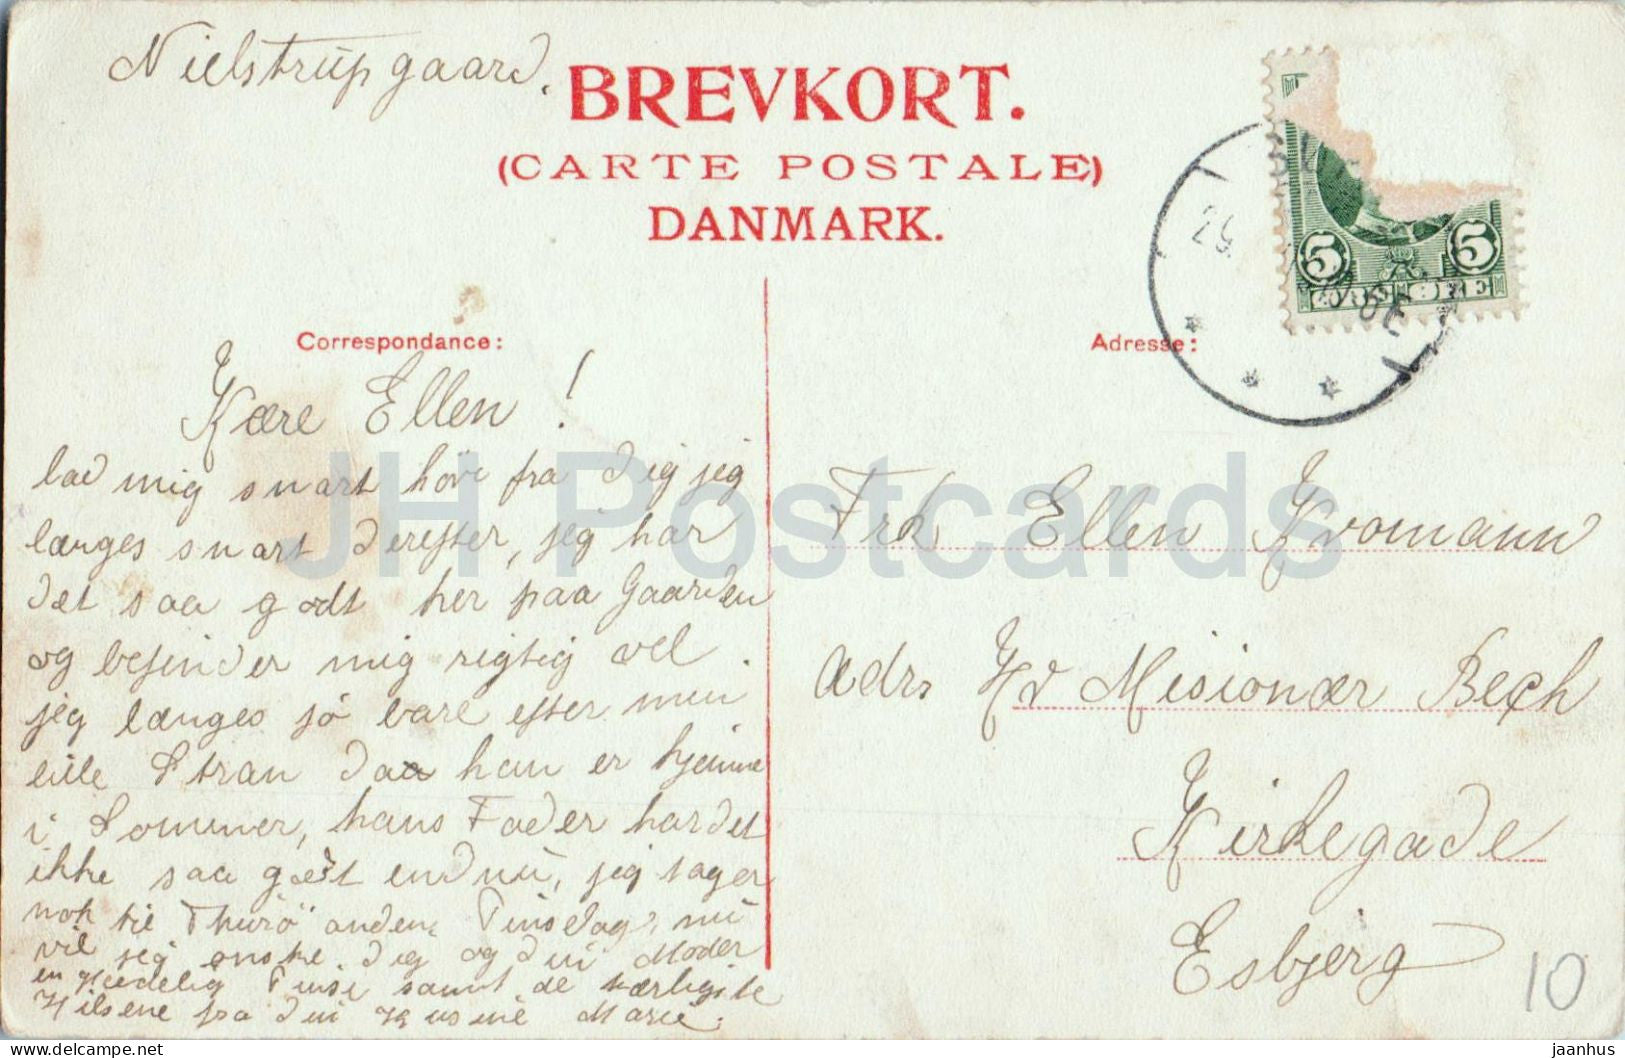 Nielstrupgaard.
BREVKORT.
(CARTE POSTALE)
DANMARK.
5 5
Correspondance:
Adresse:
Kære Ellen!
lad mig snart höre fra dig jeg
længes snart derefter, jeg har
det saa godt her paa Gaarden
og befinder mig rigtig vel.
jeg længes jö bare efter min
lille Stran daa han er hjemme
i Sommer, hans Fader har det
ikke saa godt endnu, jeg tager
nok til Thurö anden Pinsedag, nu
vil jeg önske dig og din Moder
en glædelig Pinse samt de kærligste
Hilsene fra din Kusine Marie.
Frk Ellen Kromann
adr, Hr Misionær Bech
Kirkegade
Esbjerg
10
JH Postcards
DELCAMPE.NET
jaanhus